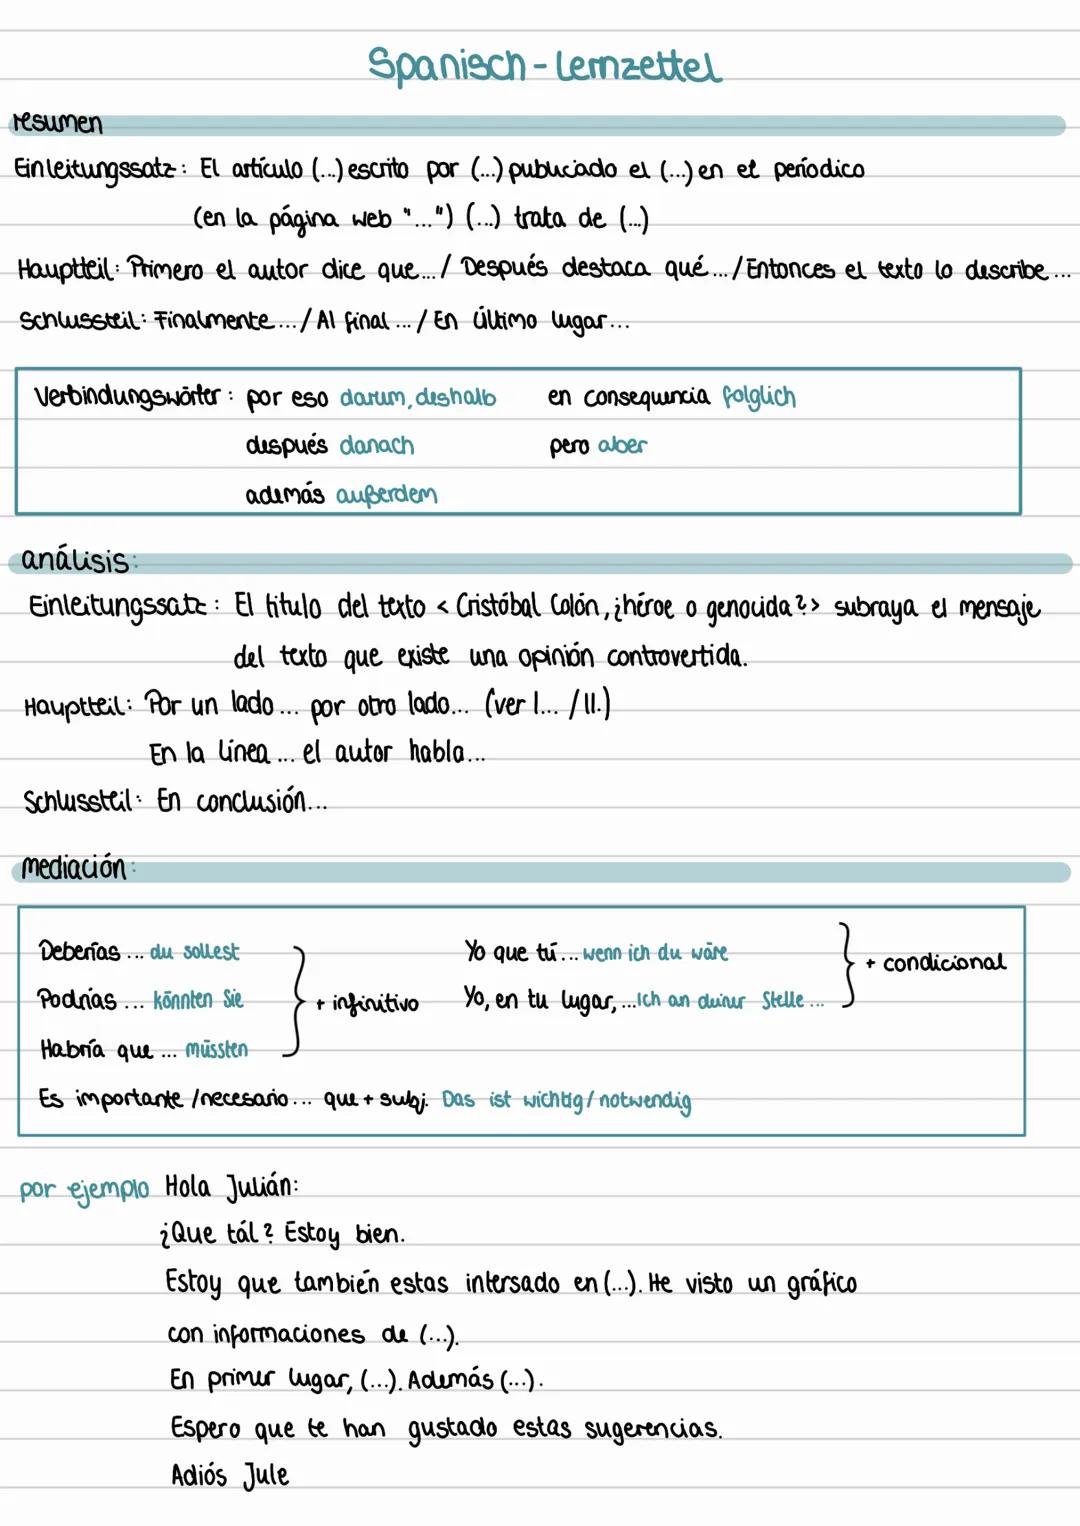 Spanisch-Lernzettel
resumen
Einleitungssatz: El artículo (...) escrito por (...) publiciado el (...) en el períodico
(en la página web "...") (...) trata de (...)
Hauptteil: Primero el autor dice que.../ Después destaca qué.../ Entonces el texto lo describe...
Schlussteil: Finalmente.../ Al final.../ En último lugar...
Verbindungswörter: por eso darum, deshalb en consequencia folglich
después danach pero aber
además außerdem
análisis:
Einleitungssatz: El titulo del texto < Cristóbal Colón, ¿héroe o genocida?> subraya el mensaje
del texto que existe una opinión controvertida.
Hauptteil: Por un lado... por otro lado... (ver l... / ll.)
En la línea... el autor habla...
Schlussteil: En conclusión...
mediación:
Deberías... du sollest Yo que tú... wenn ich du wäre + condicional
Podrías... könnten Sie + infinitivo Yo, en tu lugar,... Ich an deiner Stelle...
Habría que... müssten
Es importante /necesario... que + subj. Das ist wichtig/ notwendig
por ejemplo Hola Julián:
¿Que tál? Estoy bien.
Estoy que también estas intersado en (...). He visto un gráfico
con informaciones de (...).
En primer lugar, (...). Además (...).
Espero que te han gustado estas sugerencias.
Adiós Jule